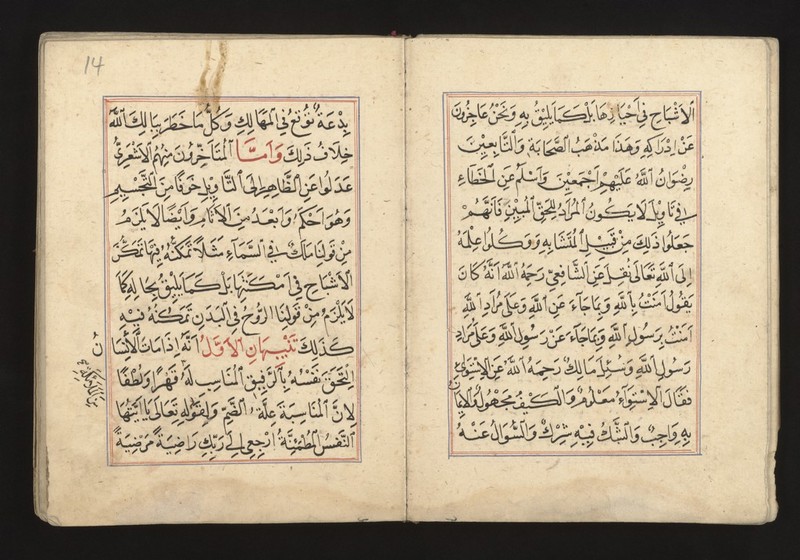 الاشباح في احيازها بل كما يليق به ونحن عاجزون
عن ادراكه وهذا مذهب الصحابة والتابعين
رضوان الله عليهم اجمعين واسلم عن الخطاء
في تاويل لا يكون المراد للحق المبين فانهم
جعلوا ذلك من قبيل المتشابه ووكلوا علمه
الى الله تعالى نقل عن الشافعي رحمه الله انه كان
يقول امنت بالله وبما جاء عن الله وعلى مراد الله
امنت برسول الله وبما جاء عن رسول الله وعلى مراد
رسول الله وسئل مالك رحمه الله عن الاستواء
فقال الاستواء معلوم والكيف مجهول والايمان
به واجب والشك فيه شرك والسؤال عنه
14
بدعة توقع في المهالك وكل ما خطر ببالك الله
خلاف ذلك واما المتاخرون منهم الاشعري
عدلوا عن الظاهر الى التاويل خوفا من التجسيم
وهو احكم وابعد من الاثام وايضا لا يلزم
من قولنا ملك في السماء مثلا تمكنه فيها تمكن
الاشباح في امكنتها بل كما يليق بحاله كما
لا يلزم من قولنا الروح في البدن تمكنه فيه
كذلك تنبيهان الاول انه اذا مات الانسان
التحق نفسه بالرفيق المناسب له قهرا ولطفا
لان المناسبة علة الضم ولقوله تعالى يا ايتها
النفس المطمئنة ارجعي الى ربك راضية مرضية